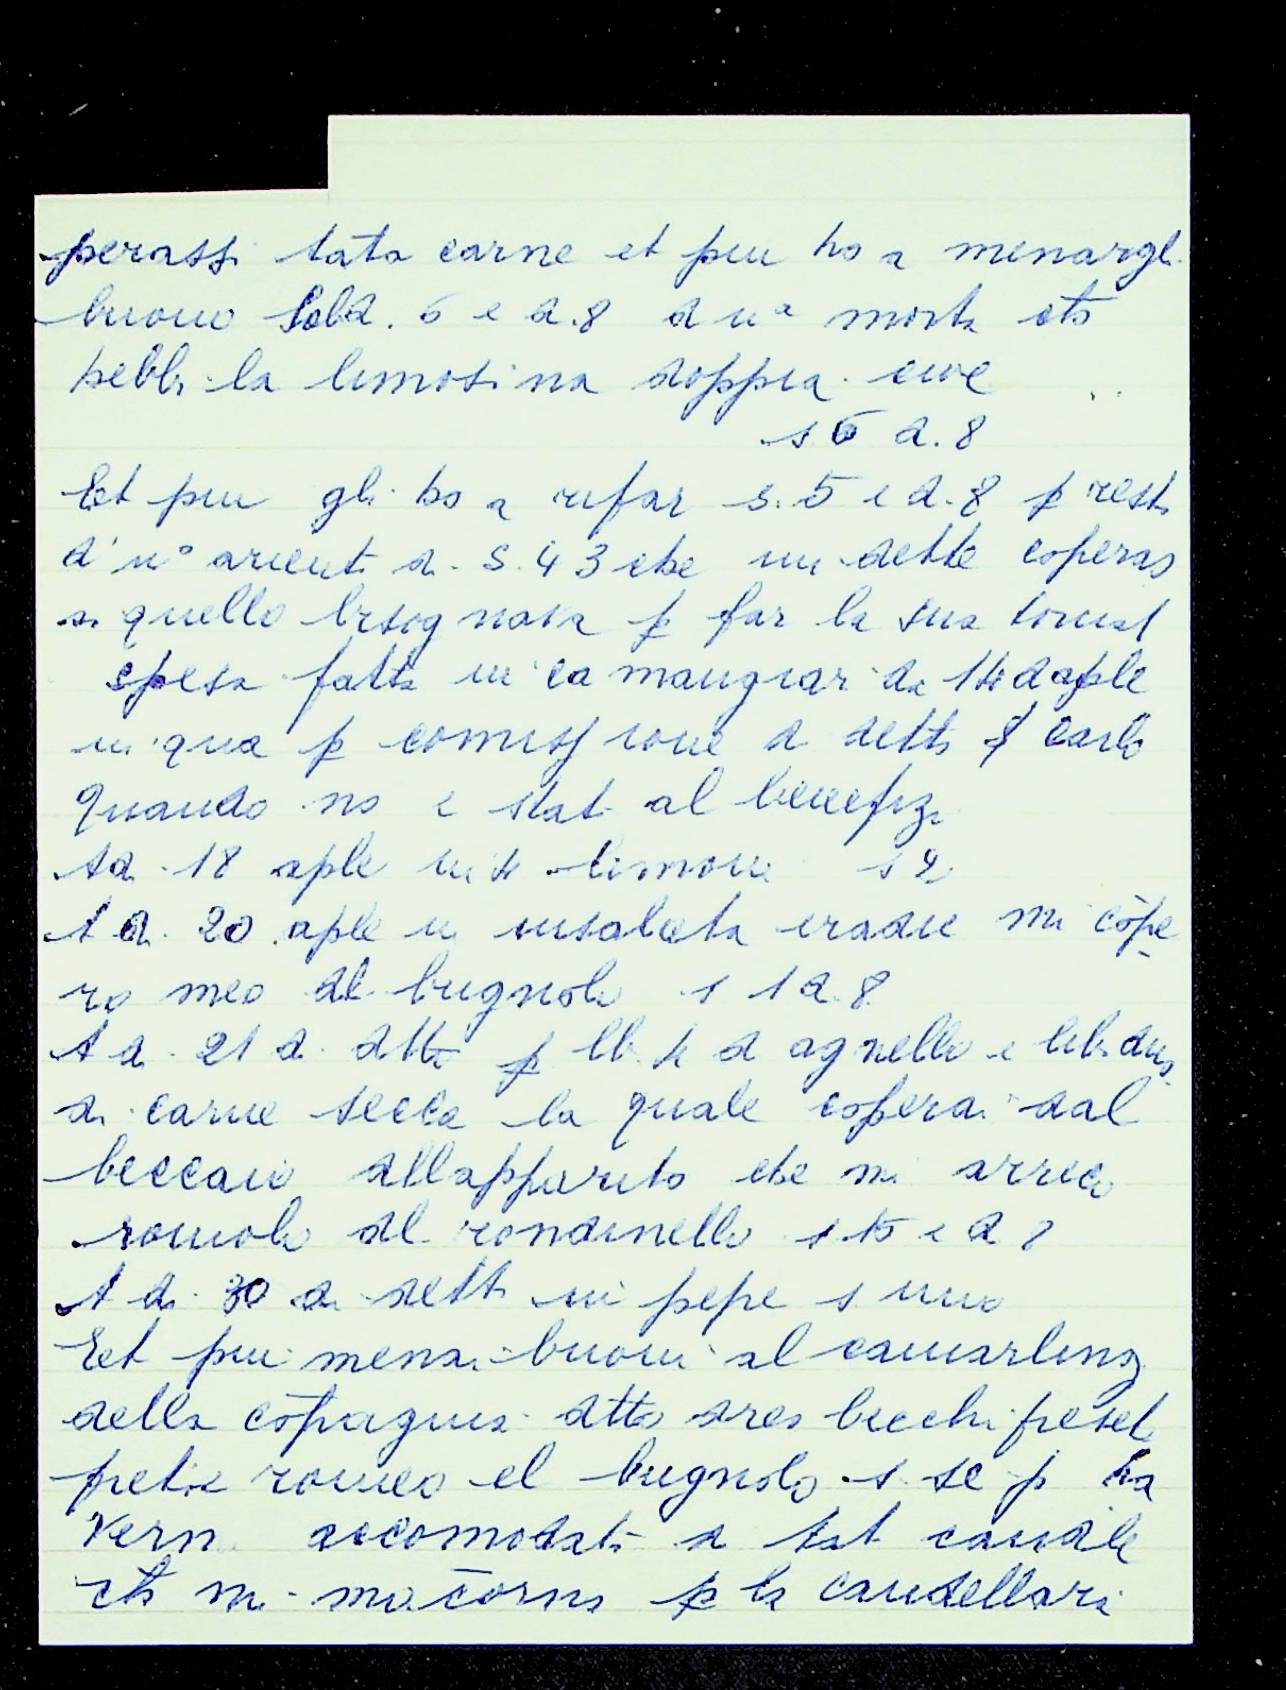 perassi tāta carne et piu ho a menargl.
buono sold. 6 e d.8 d uª morta cħo
hebbi la limosina doppia cioe
s 6 d.8
Et piu gli ho a rifar s. 5 e d.8 ꝑ resto
d' uº arienti di S. 43 che mi dette coperas
di quello bisognava ꝑ far la sua
spesa fatta in ca mangiar da 14 d aple
in qua ꝑ comissione d detto carlo
Quando nō e stato al benefizi
A d. 18 aple in 4 limoni s 2
A di 20 aple in insalata eradic mi cōpe
ro meo del bugnolo s 1 d.8
A di 21 d. dtto ꝑ lb. 4 d agnello e lib. dua
di carne secca la quale coperai dal
beccaio allapparito che mi arreco
romolo del rondinello s. 15 e d 8
A di 30 di detto in pepe s uno
Et piu menai buoni al camarling
della cōpagnia dtto dreo becchi
romeo el bugnolo s. se p ha
vern accomodati d tat candele
cħo mi ꝑ la candellaria